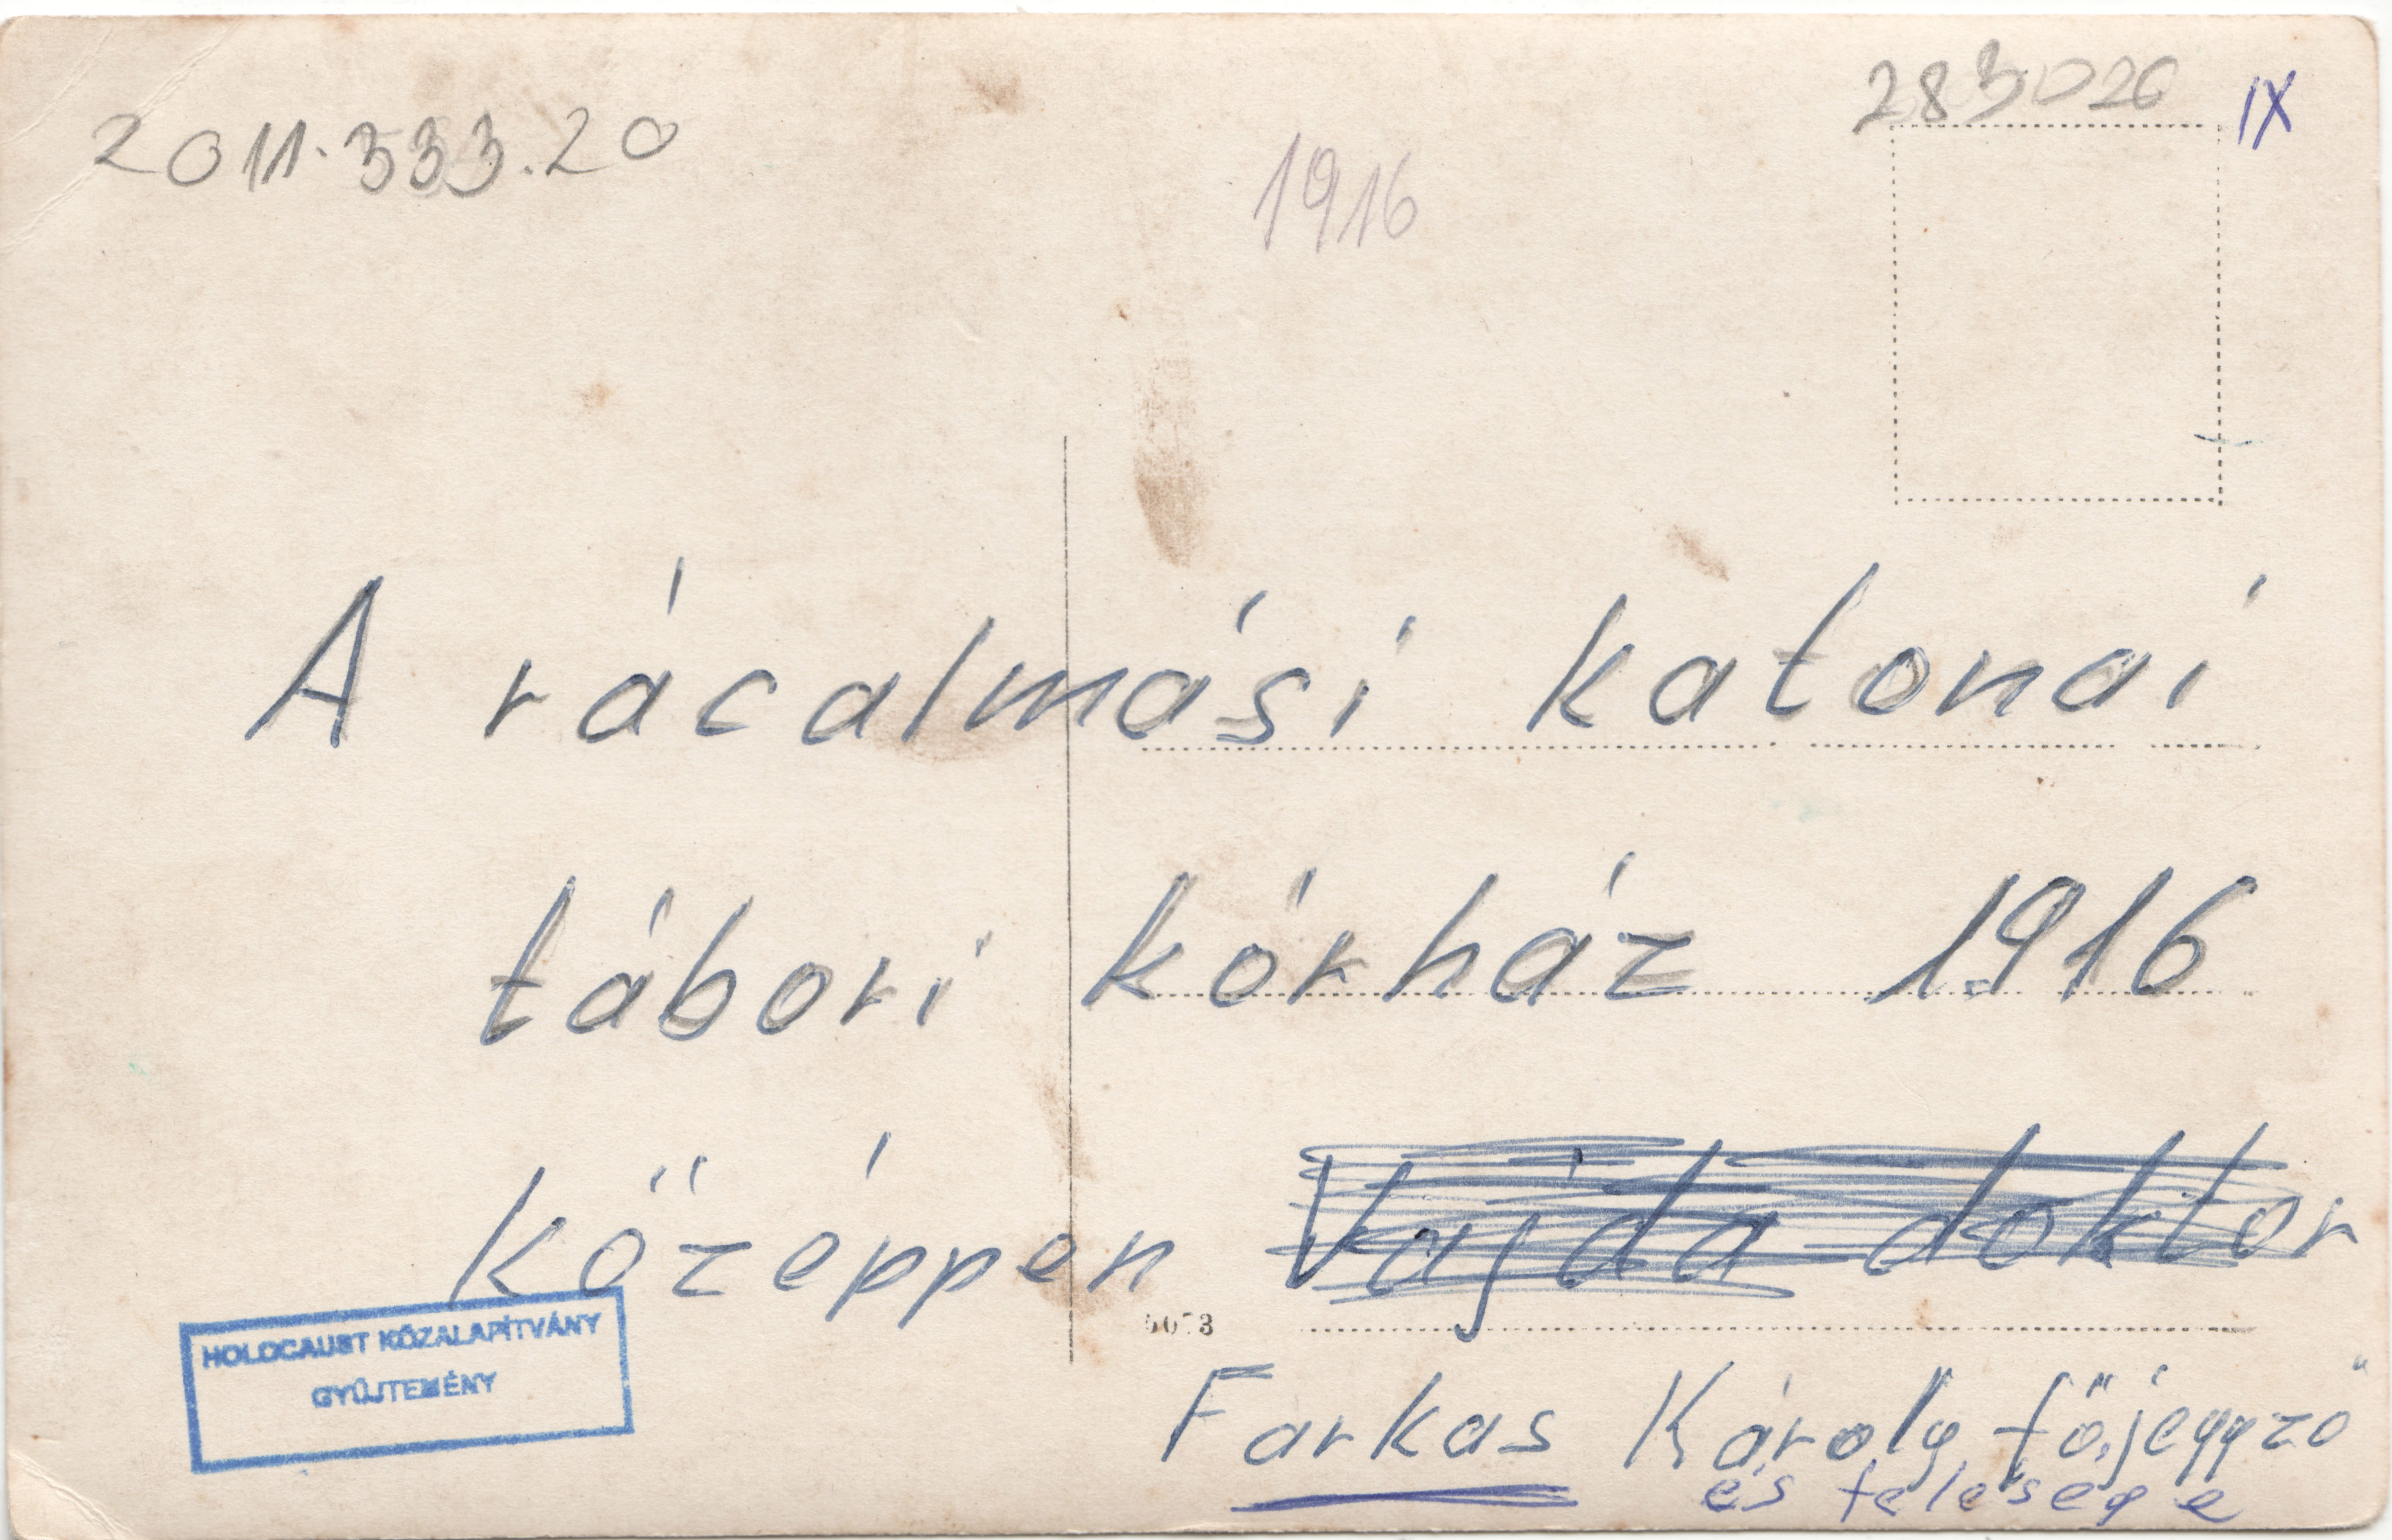 2011.333.20
1916
283026
IX
A rácalmási katonai
tábori kórház 1916
középpen Vajda doktor
HOLOCAUST KÖZALAPÍTVÁNY
GYŰJTEMÉNY
Farkas Károly főjegyző
és felesége